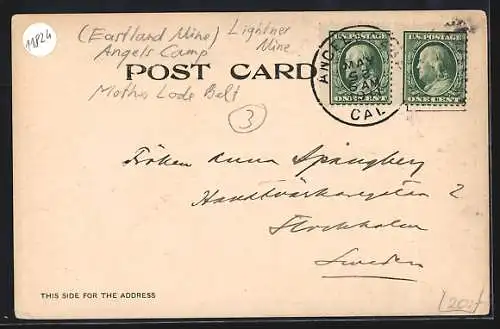 11824
(Eastland Mine) Lightner
Angels Camp Mine
POST CARD
Mother Lode Belt
3
U.S. POSTAGE
U.S. POSTAGE
ONE CENT
ONE CENT
MAY
CAL.
Fröken Anna Spångberg
Handtvärkaregatan 2
Stockholm
Sweden
THIS SIDE FOR THE ADDRESS